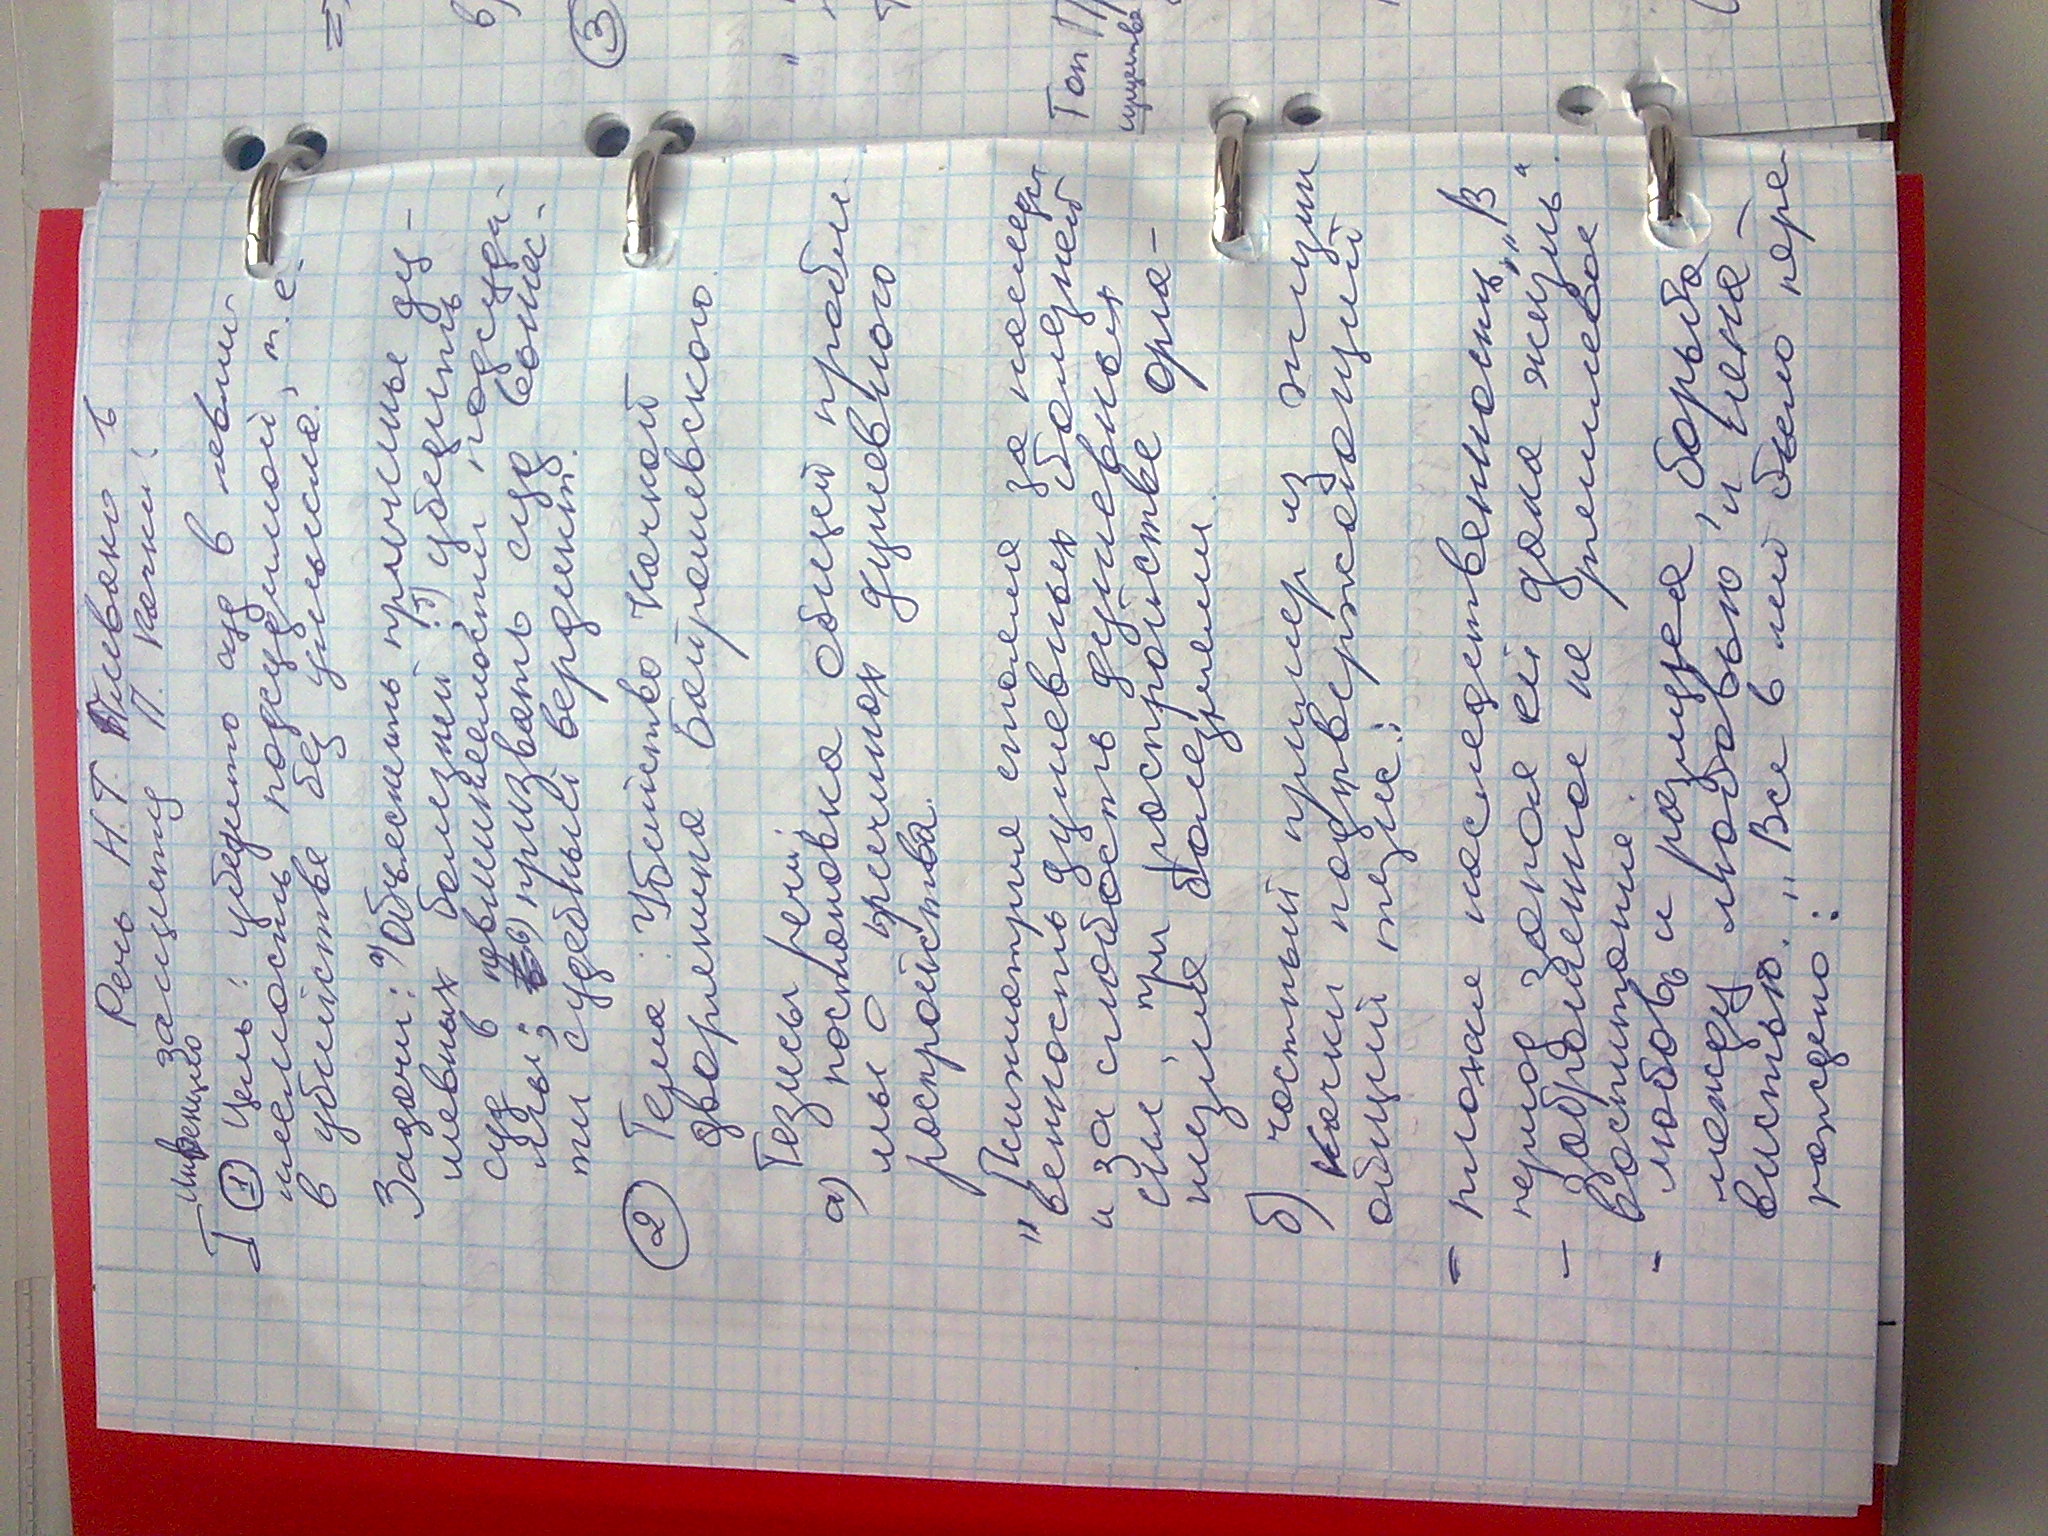 Речь Н.Г. Плевако в
защиту П. Качки:
Инвенцио
I ① Цель: убедить суд в невми-
няемость подсудимой, т.е.
в убийстве без умысла.
Задачи: а) Объяснить причины ду-
шевных болезней б) убедить
суд в невменяемости подсуди-
мы; в) призвать суд вынес-
ти судебный вердикт.
② Тема: Убийство Качкой
дворянина Байрошевского
Тезисы речи:
а) постановка общей пробле
мы о причинах душевного
расстройства.
"Психиатрия стояла за наследст
венность душевных болезней
и за слабость душевных
сил при расстройстве орга-
низма болезнями.
б) частный пример из жизни
Качки подтверждающий
общий тезис:
- плохая наследственность, "В
период запоя ей дана жизнь".
- Заброшенное не терпимое
воспитание.
- любовь и разлука, борьба
между любовью и нена-
вистью. "Все в ней было пере
рождено:
=>
в)
③
"
Топ